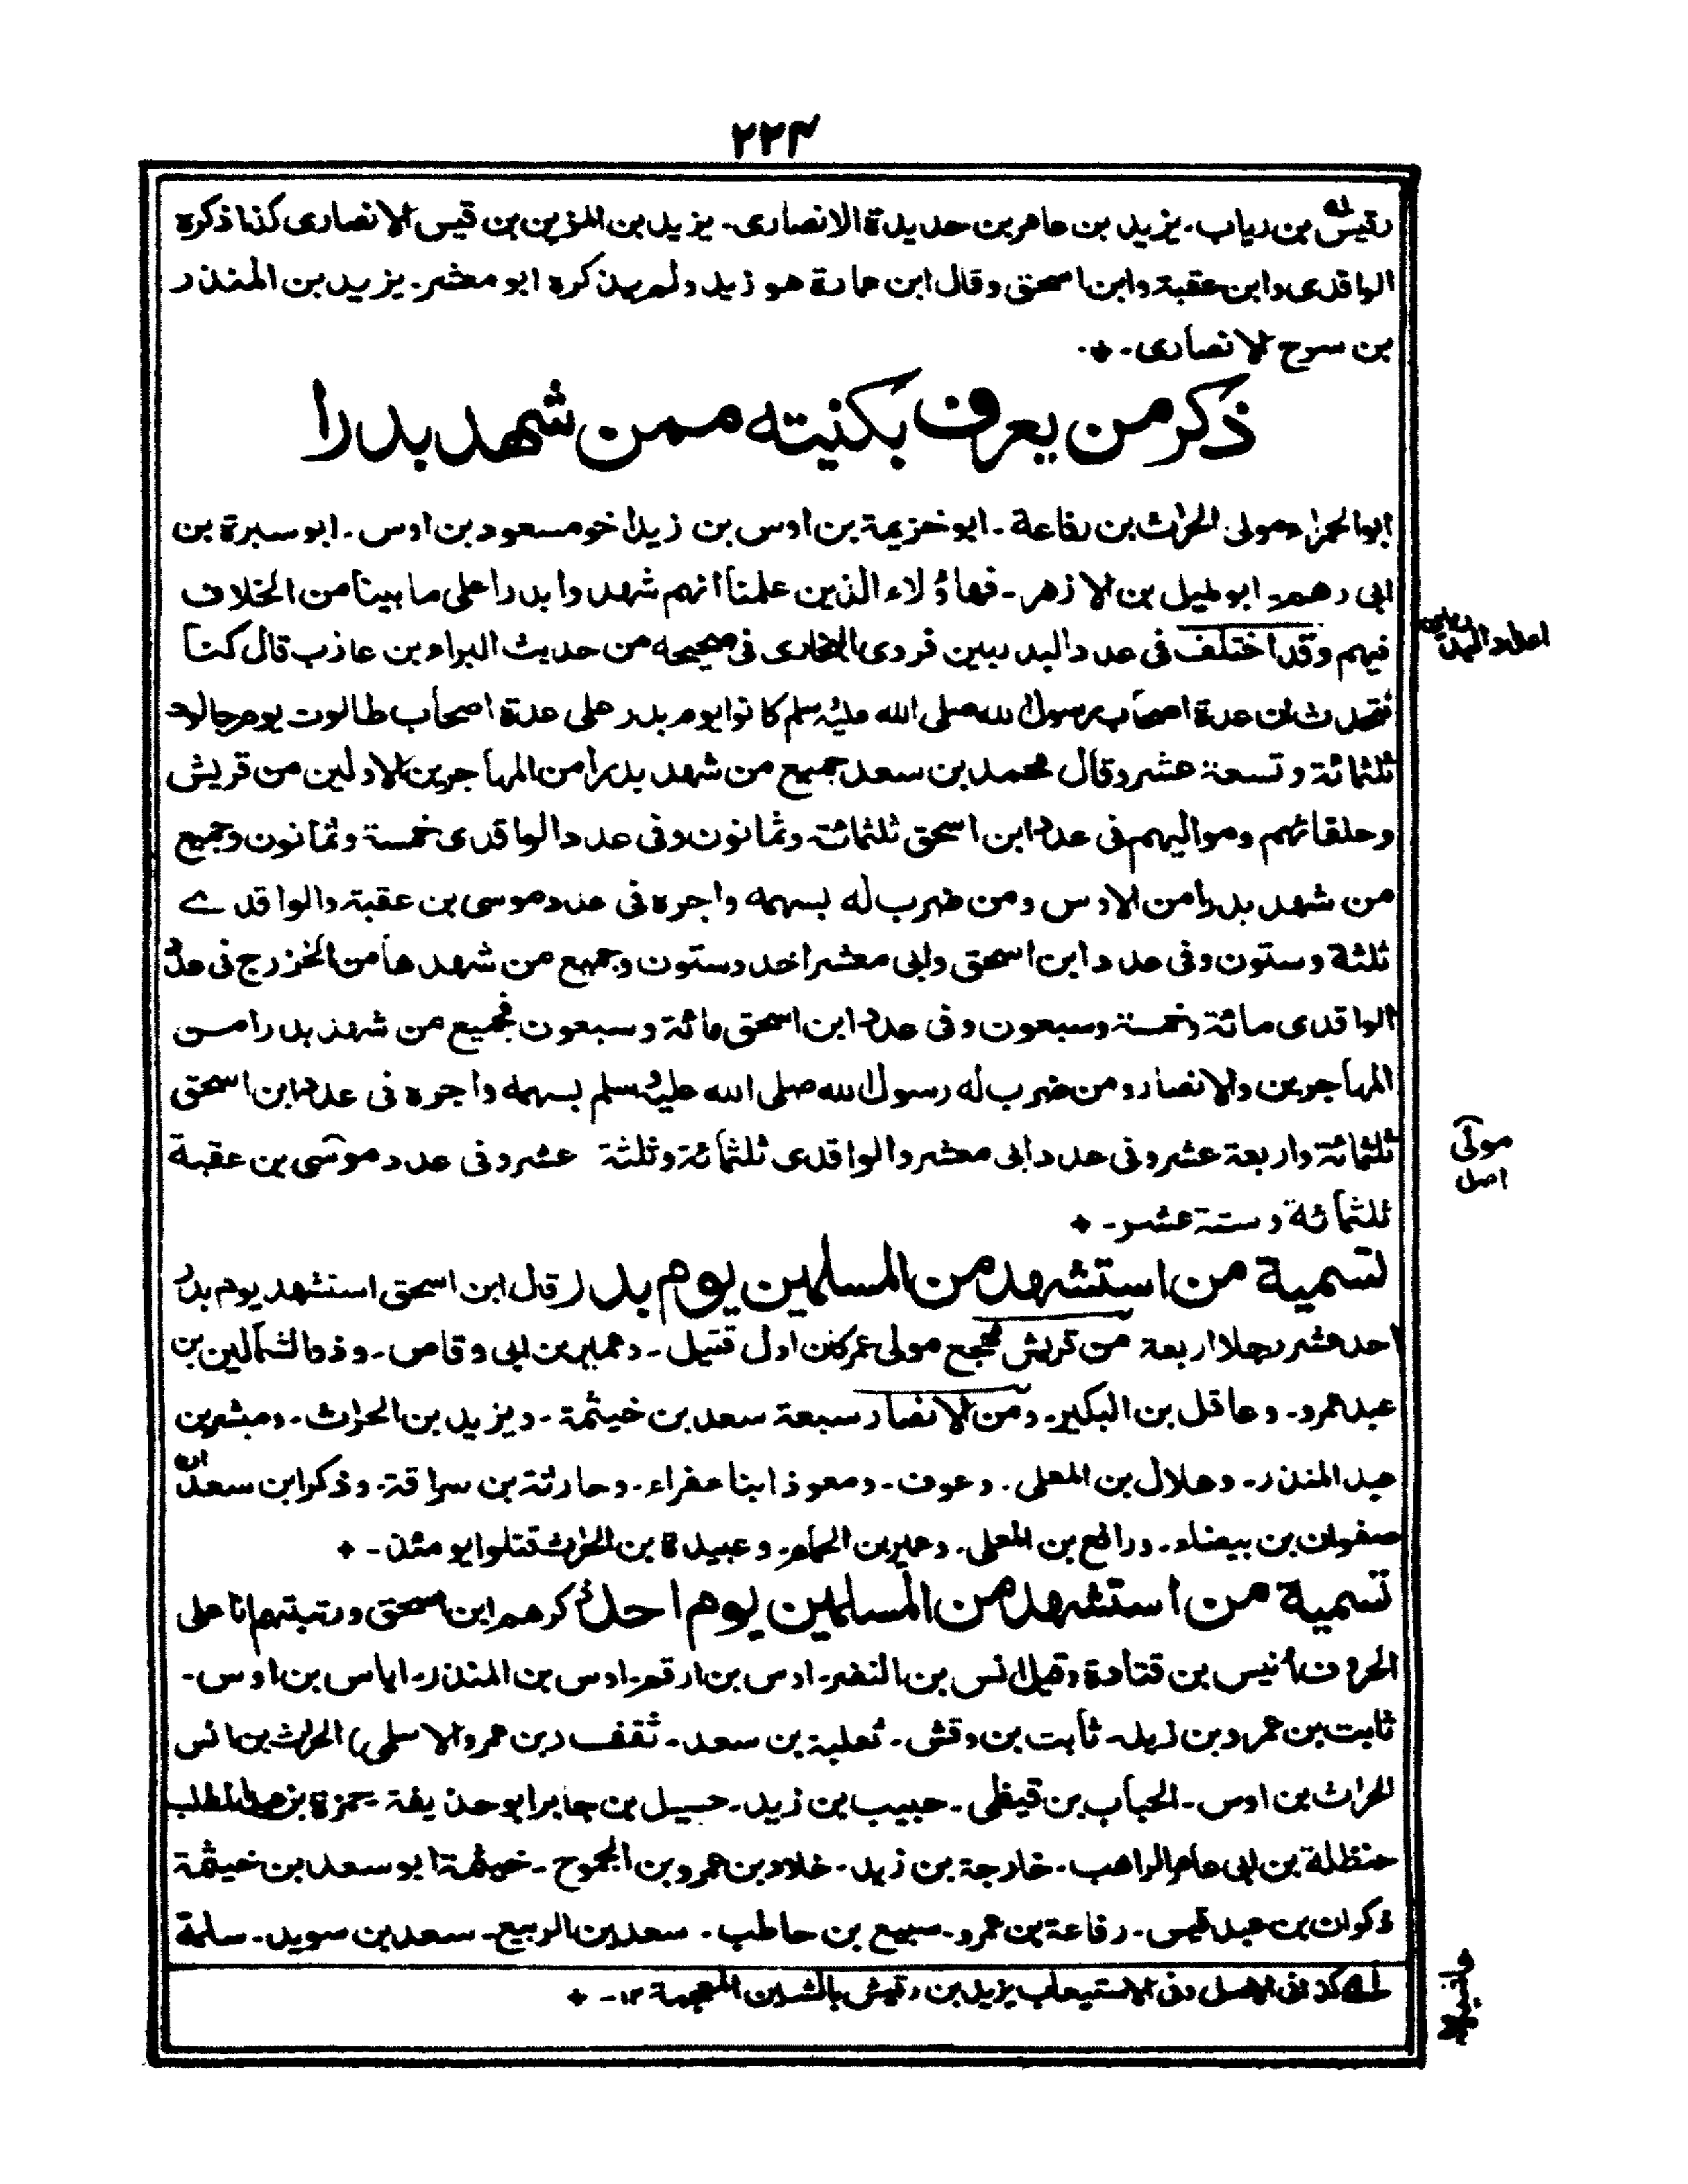 ٢٢٤
رقيس له بن رياب - يزيد بن عامر بن حديدة الانصارى - يزيد بن المزين بن قيس الانصارى كذا ذكره
الواقدى وابن عقبة وابن اسحق وقال ابن عمارة هو زيد ولم يذكره ابو معشر - يزيد بن المنذر
بن سرح الانصارى -
ذكر من يعرف بكنيته ممن شهد بدرا
ابو الحمراء مولى الحرث بن رفاعة - ابو خزيمة بن اوس بن زيد اخو مسعود بن اوس - ابو سبرة بن
ابى رهم - ابو مليل بن الازهر - فهاؤلاء الذين علمنا انهم شهدوا بدرا على ما بينا من الخلاف
فيهم وقد اختلف فى عدد البدريين فروى البخارى فى صحيحه من حديث البراء بن عازب قال كنا
نتحدث ان عدة اصحاب رسول الله صلى الله عليه وسلم كانوا يوم بدر على عدة اصحاب طالوت يوم جالوت
ثلثمائة وتسعة عشر وقال محمد بن سعد جميع من شهد بدرا من المهاجرين الاولين من قريش
وحلفائهم ومواليهم فى عدد ابن اسحق ثلثمائة وثمانون وفى عدد الواقدى خمسة وثمانون وجميع
من شهد بدرا من الاوس ومن ضرب له بسهمه واجره فى عدد موسى بن عقبة والواقدے
ثلثة وستون وفى عدد ابن اسحق وابى معشر احد وستون وجميع من شهدها من الخزرج فى عدد
الواقدى مائة وخمسة وسبعون وفى عدد ابن اسحق مائة وسبعون فجميع من شهد بدرا من
المهاجرين والانصار ومن ضرب له رسول الله صلى الله عليه وسلم بسهمه واجره فى عدد ابن اسحق
ثلثمائة واربعة عشر وفى عدد ابى معشر والواقدى ثلثمائة وثلثة عشر وفى عدد موسى بن عقبة
ثلثمائة وستة عشر -
تسمية من استشهد من المسلمين يوم بدر قال ابن اسحق استشهد يوم بدر
احد عشر رجلا اربعة من قريش مهجع مولى عمر كان اول قتيل - وعمير بن ابى وقاص - وذو الشمالين بن
عبد عمرو - وعاقل بن البكير - ومن الانصار سبعة سعد بن خيثمة - ويزيد بن الحرث - ومبشر بن
عبد المنذر - وهلال بن المعلى - وعوف - ومعوذ ابنا عفراء - وحارثة بن سراقة - وذكر ابن سعد ان
صفوان بن بيضاء - ورافع بن المعلى - وعمير بن الحمام - وعبيدة بن الحرث قتلوا يومئذ -
تسمية من استشهد من المسلمين يوم احد ذكرهم ابن اسحق ورتبتهم انا على
الحروف انيس بن قتادة وقيل انس بن النضر - اوس بن ارقم - اوس بن المنذر - اياس بن اوس -
ثابت بن عمرو بن زيد - ثابت بن وقش - ثعلبة بن سعد - ثقف (بن عمرو الاسلمى) الحرث بن انس
الحرث بن اوس - الحباب بن قيظى - حبيب بن زيد - حسيل بن جابر ابو حذيفة - حمزة بن عبد المطلب
حنظلة بن ابى عامر الراهب - خارجة بن زيد - خلاد بن عمرو بن الجموح - خيثمة ابو سعد بن خيثمة
ذكوان بن عبد قيس - رفاعة بن عمرو - سبيع بن حاطب - سعد بن الربيع - سعد بن سويد - سلمة
له كذا فى الاصل وفى الاستيعاب يزيد بن رقيش بالشين المعجمة ١٢ -
اعداد البدريين
مولى
اصل